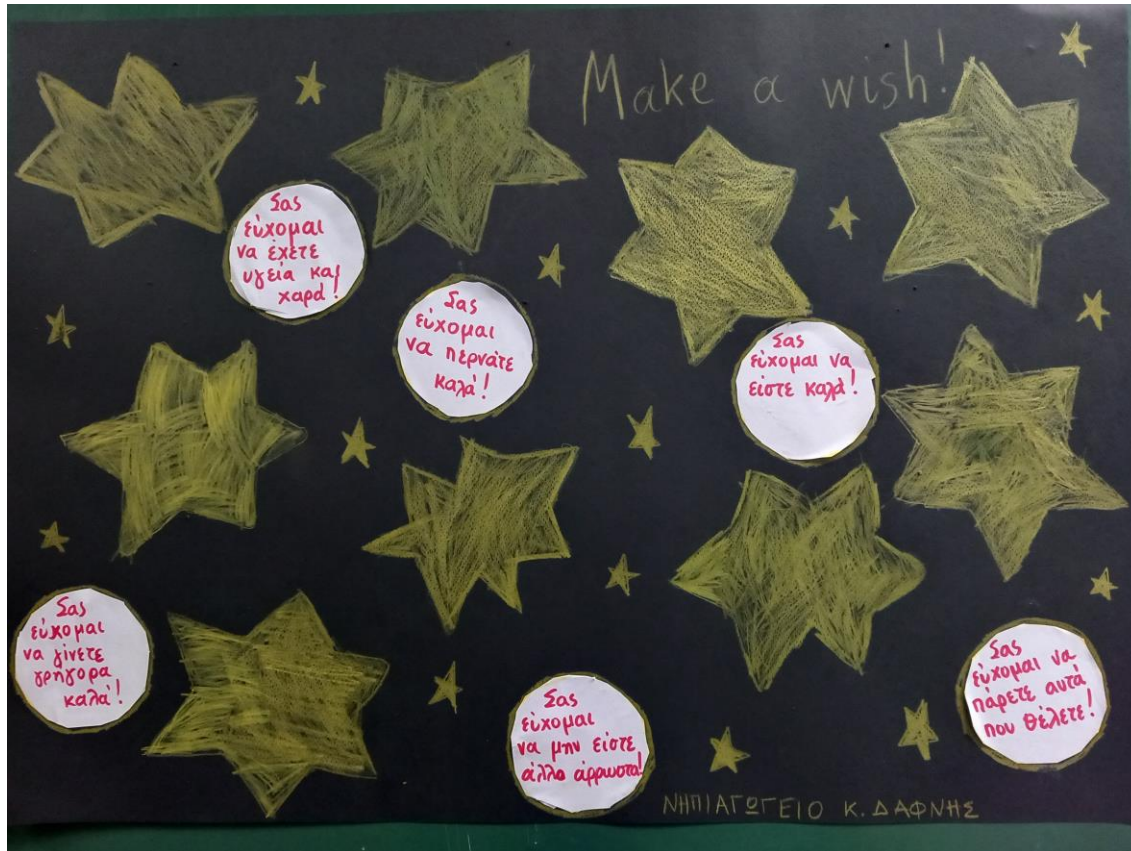 Make a wish!
Σας
εύχομαι
να έχετε
υγεία και
χαρά!
Σας
εύχομαι
να περνάτε
καλά!
Σας
εύχομαι να
είστε καλά!
Σας
εύχομαι
να γίνετε
γρήγορα
καλά!
Σας
εύχομαι
να μην είστε
άλλο άρρωστα!
Σας
εύχομαι να
πάρετε αυτά
που θέλετε!
ΝΗΠΙΑΓΩΓΕΙΟ Κ. ΔΑΦΝΗΣ